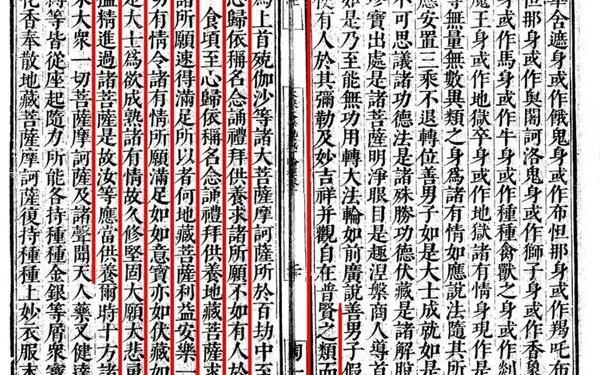 舍遮身或作餓鬼身或作布怛那身或作羯吒
怛那身或作奧闍訶洛鬼身或作師子身或作香象
身或作馬身或作牛身或作種種禽獸之身或作剡
魔王身或作地獄卒身或作地獄諸有情身現作是
等無量無數異類之身爲諸有情如應說法隨其所
應安置三乘不退轉位善男子如是大士成就如是
不可思議諸功德法是諸殊勝功德伏藏是諸解脫
珍寶出處是諸菩薩明淨眼目是趣涅槃商人導首
如是乃至能無功用轉大法輪如前廣說善男子假
使有人於其彌勒及妙吉祥并觀自在普賢之類而
爲上首殑伽沙等諸大菩薩摩訶薩所於百劫中至
心歸依稱名念誦禮拜供養求諸所願不如有人於
食頃至心歸依稱名念誦禮拜供養地藏菩薩求
諸所願速得滿足所以者何地藏菩薩利益安樂一
切有情令諸有情所願滿足如如意寶亦如伏藏如
是大士爲欲成熟諸有情故久修堅固大願大悲勇
猛精進過諸菩薩是故汝等應當供養爾時十方諸
來大衆一切菩薩摩訶薩及諸聲聞天人藥叉健達
縛等皆從座起隨力所能各持種種金銀等屑衆寶
花香奉散地藏菩薩摩訶薩復持種種上妙衣服末